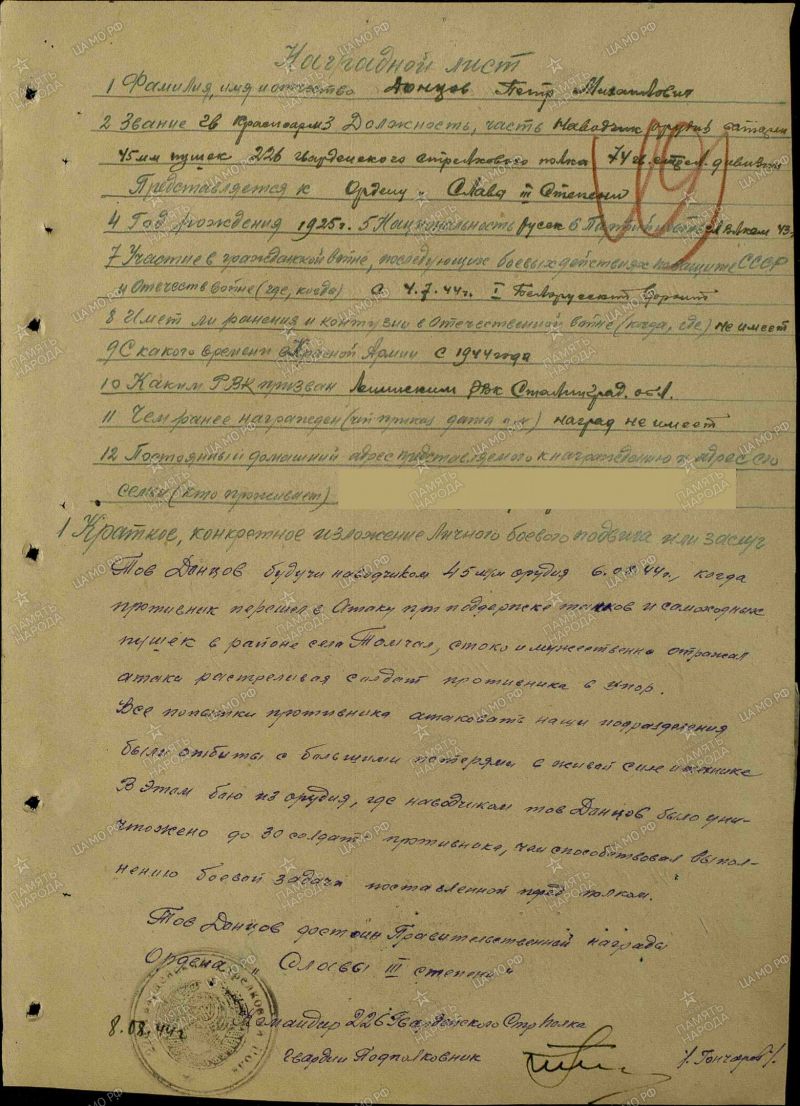 Наградной лист
1 Фамилия, имя и отчество Донцов Петр Михайлович
2 Звание гв красноарм 3 Должность, часть Наводчик орудия батареи
45мм пушек 226 гвардейского стрелкового полка 74 гв. стрел. дивизии
Представляется к Ордену „Слава III Степени
4 Год рождения 1925г. 5 Национальность русск 6 Партийность чл ВЛКСМ 43г
7 Участие в гражданской войне, последующих боевых действиях по защите СССР
и отечеств войне (где, когда) с 4.7.44г. I Белорусский фронт
8 Имет ли ранения и контузии в отечественной войне (когда, где) не имеет
9 С какого времени в Красной Армии с 1944 года
10 Каким РВК призван Ленинским РВК Сталинград. обл.
11 Чем ранее награжден ( приказ дата ) наград не имеет
12 Постоянный домашний адрес представляемого к награждению и адрес его
семьи (кто проживает)
1 Краткое, конкретное изложение личного боевого подвига или заслуг
Тов Донцов будучи наводчиком 45 м/м орудия 6.08.44г., когда
противник перешел в атаку при поддержке танков и самоходных
пушек в районе села стоко и мужественно отражал
атаки растреливая солдат противника в упор.
Все попытки противника атаковать наши подразделения
были отбиты с большими потерями в живой силе и технике
В этом бою из орудия, где наводчиком тов Донцов было уни-
чтожено до 30 солдат противника, чем способствовал выпол-
нению боевой задачи поставленной перед полком.
Тов Донцов достоин Правительственной награды
Ордена „Славы III степени"
8.08.44г Командир 226 Гвардейского Стр полка
Гвардии Подполковник /Гончаров/.